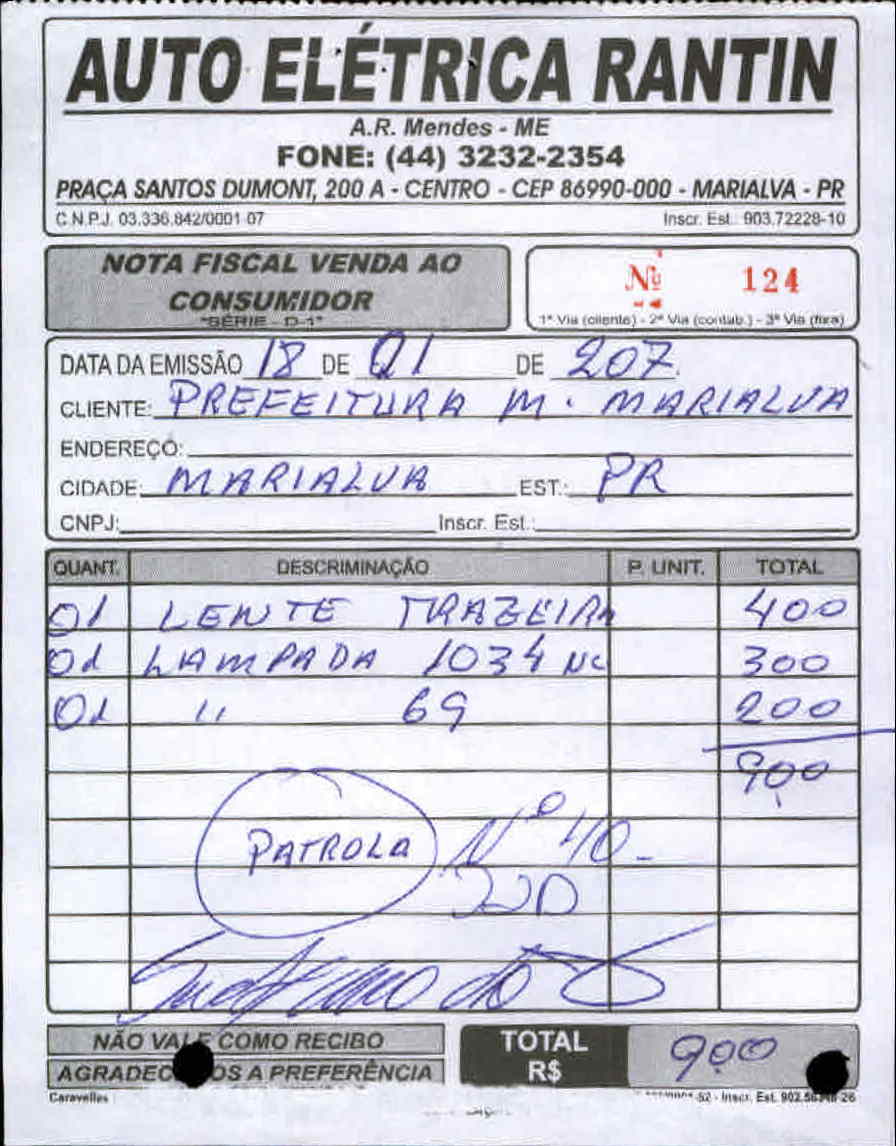 AUTO ELÉTRICA RANTIN
A.R. Mendes - ME
FONE: (44) 3232-2354
PRAÇA SANTOS DUMONT, 200 A - CENTRO - CEP 86990-000 - MARIALVA - PR
C.N.P.J. 03.336.842/0001-07 Inscr. Est.: 903.72228-10
NOTA FISCAL VENDA AO
CONSUMIDOR
"SÉRIE - D-1"
Nº 124
1ª Via (cliente) - 2ª Via (contab.) - 3ª Via (fixa)
DATA DA EMISSÃO 18 DE 01 DE 207
CLIENTE: PREFEITURA M. MARIALVA
ENDEREÇO:
CIDADE: MARIALVA EST.: PR
CNPJ: Inscr. Est.:
QUANT. DESCRIMINAÇÃO P. UNIT. TOTAL
01 LENTE TRAZEIRA 400
01 LAMPADA 1034 NC 300
01 " 69 200
900
PATROLA Nº 40
NÃO VALE COMO RECIBO
AGRADEC OS A PREFERÊNCIA
TOTAL
R$ 900
Caravelles - Inscr. Est.